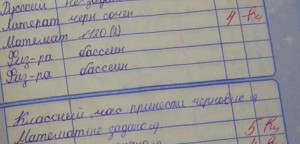 Русский не задано
Литерат черн сочен 4
Математ №120(2)
Физ-ра бассеин
Физ-ра бассеин
Классный час принести черновик
Математ не задано 5